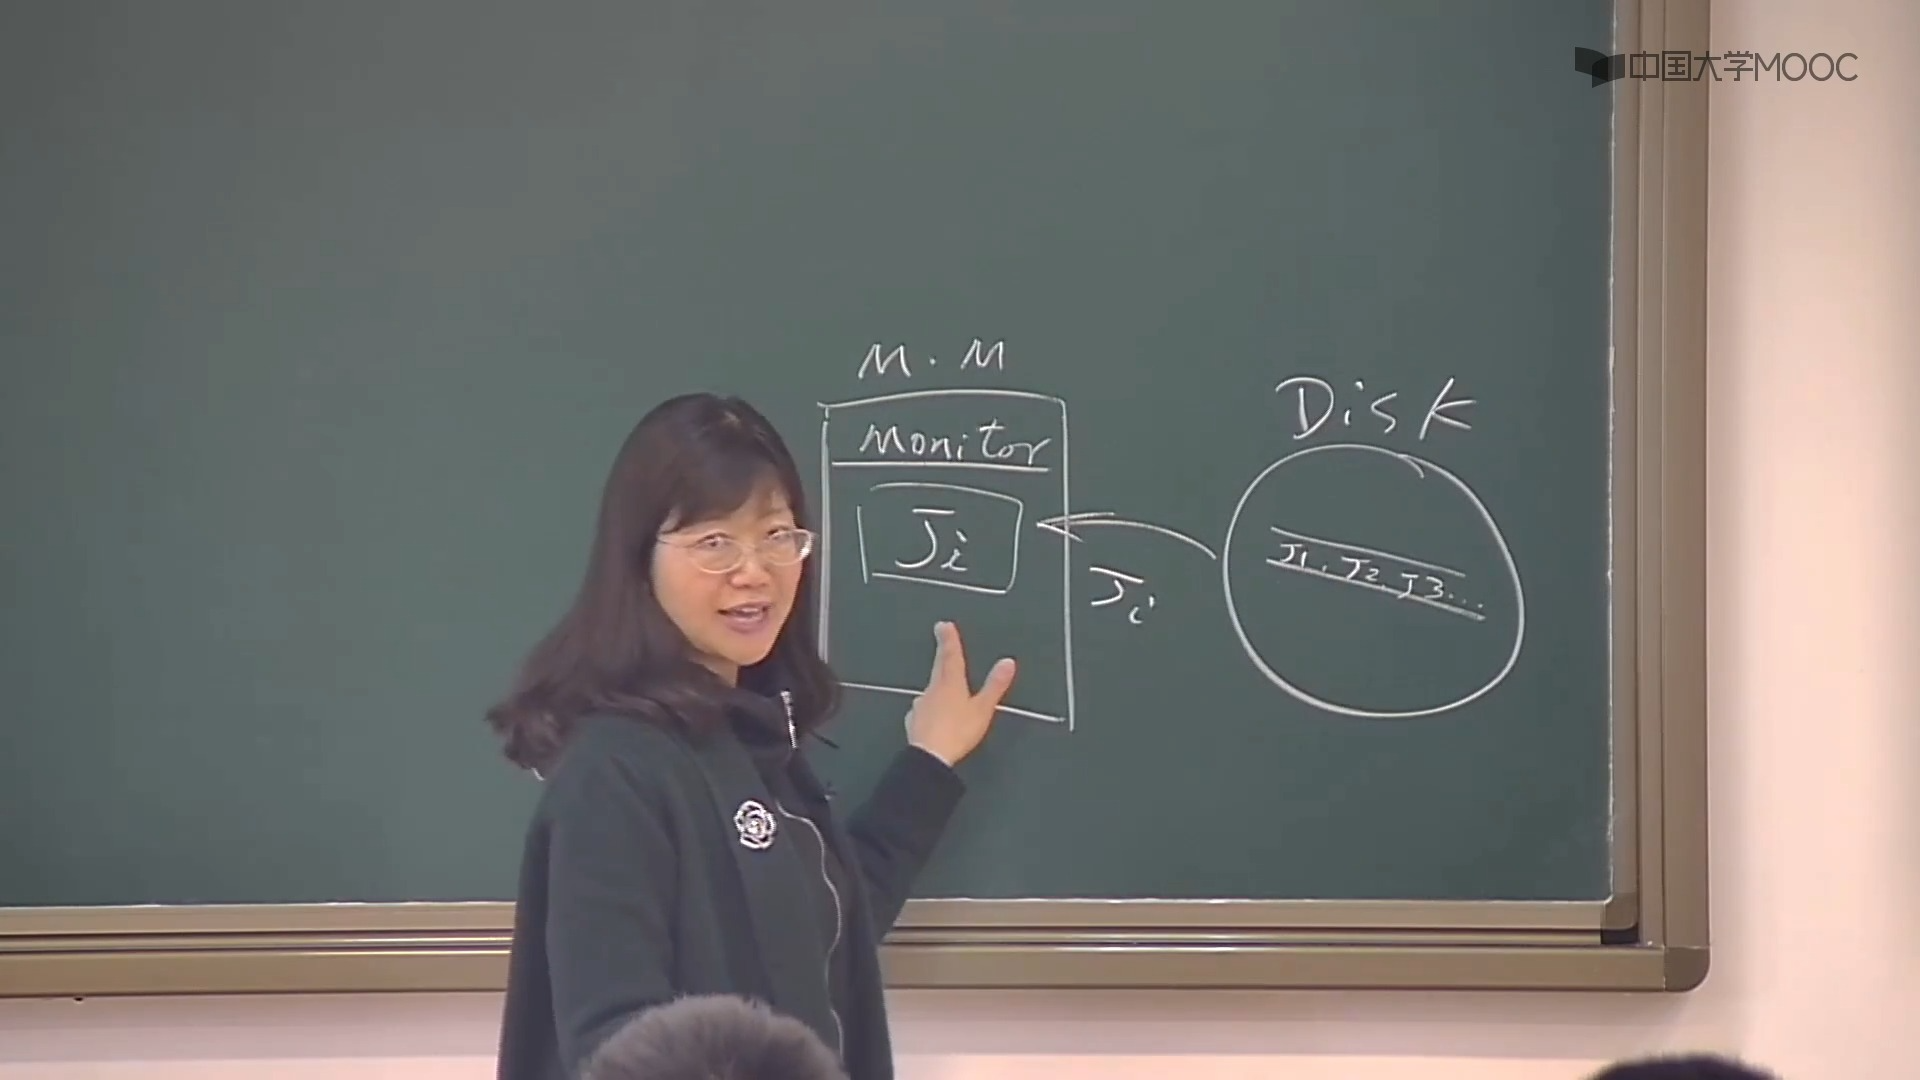 中国大学MOOC
M.M
Monitor
Ji
Ji
Disk
J1, J2, J3...